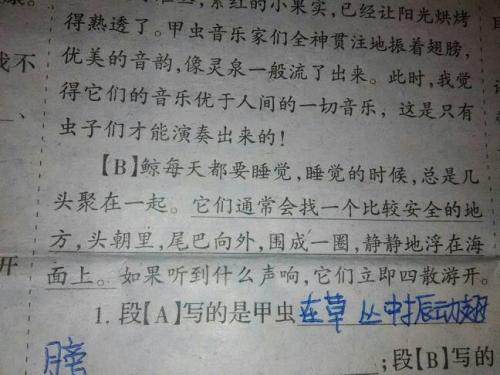 紫红的小果实,已经让阳光烘烤
得熟透了。甲虫音乐家们全神贯注地振着翅膀,
我不
优美的音韵,像灵泉一般流了出来。此时,我觉
得它们的音乐优于人间的一切音乐，这是只有
虫子们才能演奏出来的!
【B】鲸每天都要睡觉,睡觉的时候,总是几
头聚在一起。它们通常会找一个比较安全的地
方,头朝里,尾巴向外,围成一圈,静静地浮在海
开
面上。如果听到什么声响,它们立即四散游开。
1. 段【A】写的是甲虫在草丛中振动翅
膀
;段【B】写的